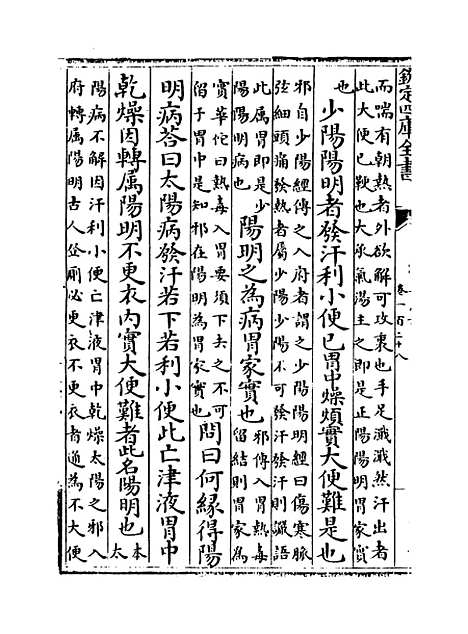 欽定四庫全書
而喘有朝熱者外欲解可攻裏也手足濈濈然汗出者
此大便已鞕也大承氣湯主之即是正陽陽明胃家實
也 少陽陽明者發汗利小便已胃中燥煩實大便難是也
邪自少陽經傳之入府者謂之少陽陽明經曰傷寒脈
弦細頭痛發熱者屬少陽少陽不可發汗發汗則譫語
此属胃即是少
陽陽明病也
陽明之為病胃家實也
邪傳入胃熱毒
留結則胃家為
實華佗曰熱毒入胃要須下去之不可
留于胃中是知邪在陽明為胃家實也
問曰何緣得陽
明病荅曰太陽病發汗若下若利小便此亡津液胃中
乾燥因轉属陽明不更衣内實大便難者此名陽明也
本
太
陽病不解因汗利小便亡津液胃中乾燥太陽之邪入
府轉属陽明古人登厠必更衣不更衣者通為不大便